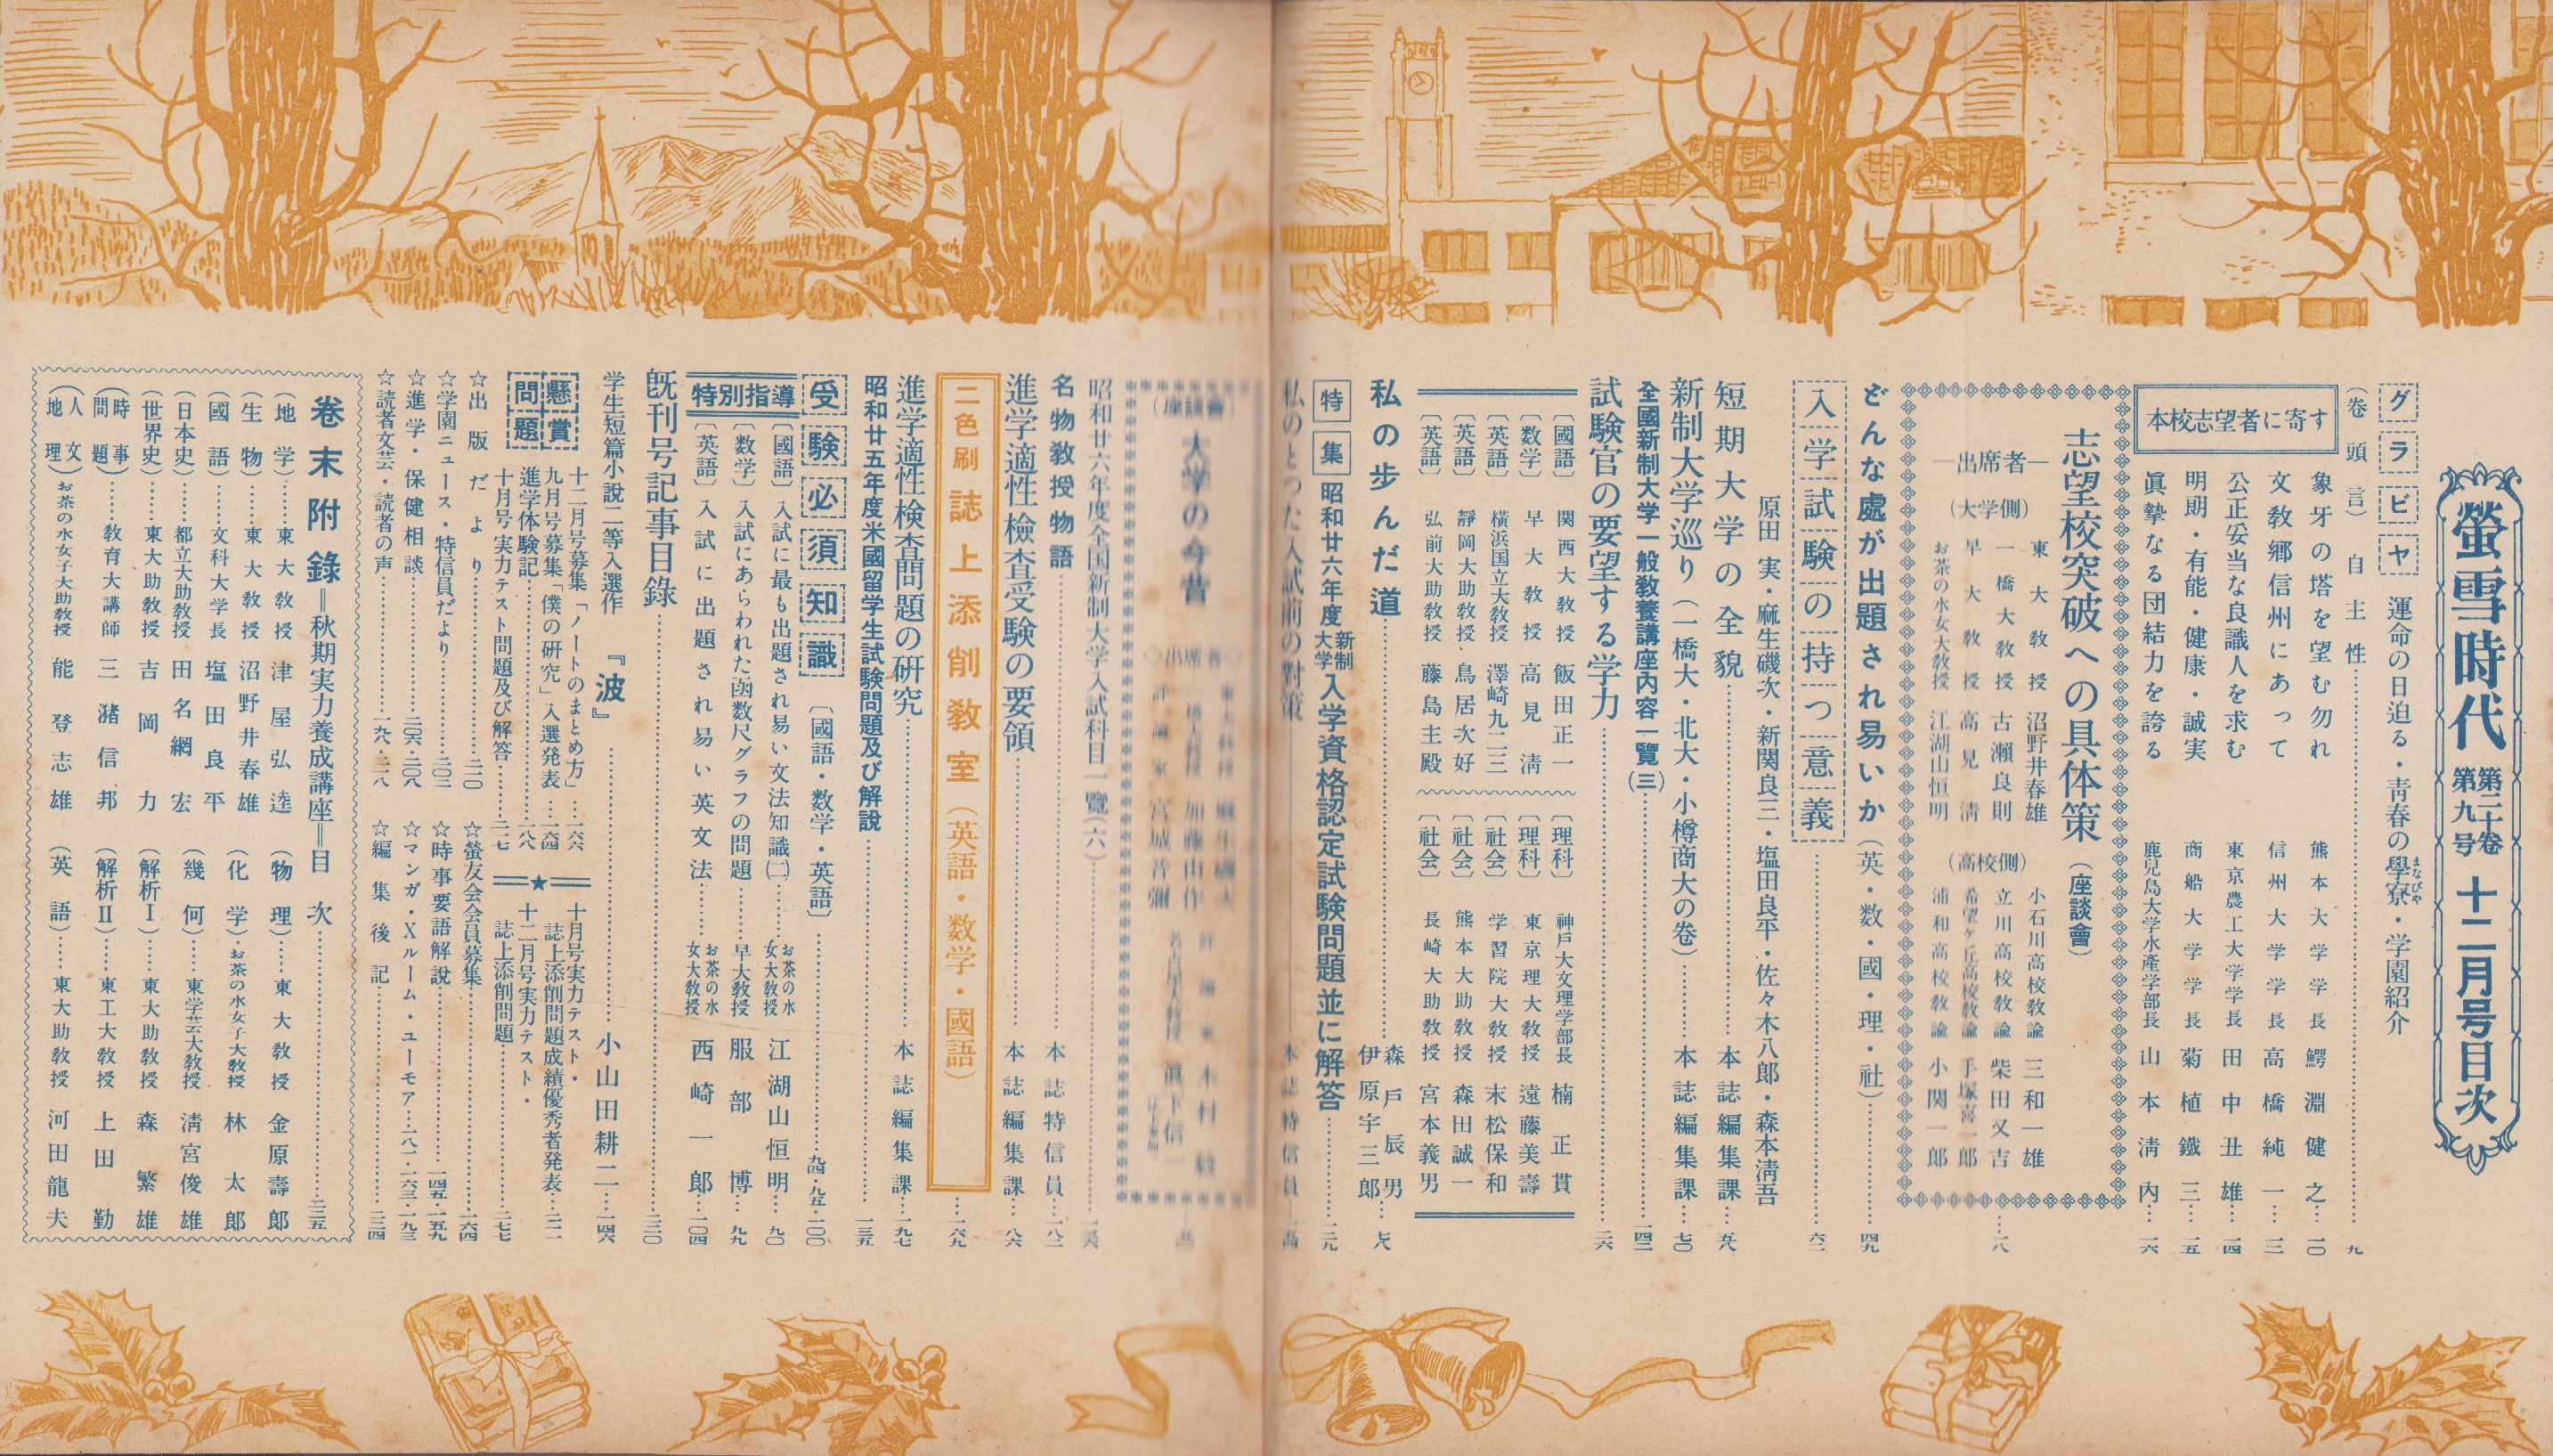 螢雪時代 第二十卷 第九号 十二月号目次
グラビヤ 運命の日迫る・青春の學寮・学園紹介
まなびや
(巻頭言) 自主性 九
本校志望者に寄す
象牙の塔を望む勿れ 熊本大学学長 鰐淵健之 一〇
文教郷信州にあって 信州大学学長 高橋純一 一二
公正妥当な良識人を求む 東京農工大学学長 田中丑雄 一四
明朗・有能・健康・誠実 商船大学学長 菊植鐵三 一五
眞摯なる団結力を誇る 鹿児島大学水産学部長 山本清内 一六
志望校突破への具体策(座談會) 一八
―出席者―
(大学側)
東大教授 沼野井春雄
一橋大教授 古瀬良則
早大教授 高見淸
お茶の水女大教授 江湖山恒明
(高校側)
小石川高校教諭 三和一雄
立川高校教諭 柴田又吉
希望ヶ丘高校教諭 手塚喜一郎
浦和高校教諭 小関一郎
どんな處が出題され易いか(英・数・國・理・社) 四九
入学試験の持つ意義 六二
原田実・麻生磯次・新関良三・塩田良平・佐々木八郎・森本淸吾
短期大学の全貌 本誌編集課
新制大学巡り(一橋大・北大・小樽商大の巻) 本誌編集課 七〇
全國新制大学一般教養講座内容一覽(三)
試験官の要望する学力 二六
〔國語〕 関西大教授 飯田正一
〔数学〕 早大教授 高見淸
〔英語〕 横浜国立大教授 澤崎九二三
〔英語〕 靜岡大助教授 鳥居次好
〔英語〕 弘前大助教授 藤島主殿
〔理科〕 神戸大文理学部長 楠正貫
〔理科〕 東京理大教授 遠藤美壽
〔社会〕 学習院大教授 末松保和
〔社会〕 熊本大助教授 森田誠一
〔社会〕 長崎大助教授 宮本義男
私の歩んだ道 森戸辰男 伊原宇三郎
特集 昭和廿六年度新制大学入学資格認定試験問題並に解答
私のとった入試前の對策 本誌特信員
(座談會) 大学の今昔
昭和廿六年度全国新制大学入試科目一覽(六)
名物教授物語 本誌特信員 一八二
進学適性檢査受験の要領 本誌編集課 八六
二色刷 誌上添削教室(英語・数学・國語) 一六九
進学適性検査問題の研究 本誌編集課 一九七
昭和廿五年度米國留学生試験問題及び解說 一三五
受験必須知識〔國語・数学・英語〕 九四・九五・一〇〇
特別指導
〔國語〕入試に最も出題され易い文法知識(二) お茶の水女大教授 江湖山恒明 九〇
〔数学〕入試にあらわれた函数尺グラフの問題 早大教授 服部博 九九
〔英語〕入試に出題され易い英文法 お茶の水女大教授 西崎一郎 一〇四
既刊号記事目錄 二三〇
学生短篇小説二等入選作 『波』 小山田耕二 一四六
懸賞問題
十二月号募集「ノートのまとめ方」 一六六
九月号募集「僕の研究」入選発表 一六四
進学体験記 一八
十月号実力テスト問題及び解答 二一七
十月号実力テスト・誌上添削問題成績優秀者発表 二二一
十二月号実力テスト・誌上添削問題 二七七
☆出版だより 二一〇
☆学園ニュース・特信員だより 二〇二
☆進学・保健相談 二〇六・二〇八
☆読者文芸・読者の声
☆螢友会会員募集 一六四
☆時事要語解說 一四五・一五九
☆マンガ・Xルーム・ユーモア 二八二・一六三・一九三
☆編集後記 二三四
巻末附錄=秋期実力養成講座=目次 二三五
(地学) 東大教授 津屋弘逵
(生物) 東大教授 沼野井春雄
(國語) 文科大学長 塩田良平
(日本史) 都立大助教授 田名網宏
(世界史) 東大助教授 吉岡力
(時事問題) 教育大講師 三瀦信邦
(人文地理) お茶の水女子大助教授 能登志雄
(物理) 東大教授 金原壽郎
(化学) お茶の水女子大教授 林太郎
(幾何) 東学芸大教授 淸宮俊雄
(解析Ⅰ) 東大助教授 森繁雄
(解析Ⅱ) 東工大教授 上田勤
(英語) 東大助教授 河田龍夫